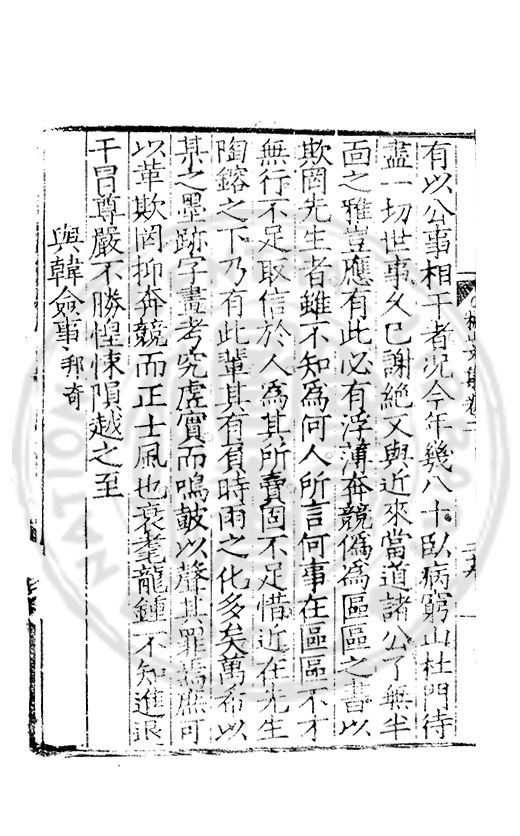 有以公事相干者况今年幾八十臥病窮山杜門待
盡一切世事久已謝絕又與近來當道諸公了無半
面之雅豈應有此必有浮薄奔競僞爲區區之書以
欺罔先生者雖不知爲何人所言何事在區區不才
無行不足取信於人爲其所賣固不足惜近在先生
陶鎔之下乃有此輩其有負時雨之化多矣萬希以
其之墨跡字畫考究虛實而鳴鼓以聲其罪焉庶可
以革欺罔抑奔競而正士風也衰耄龍鍾不知進退
干冒尊嚴不勝惶悚隕越之至
與韓僉事邦奇